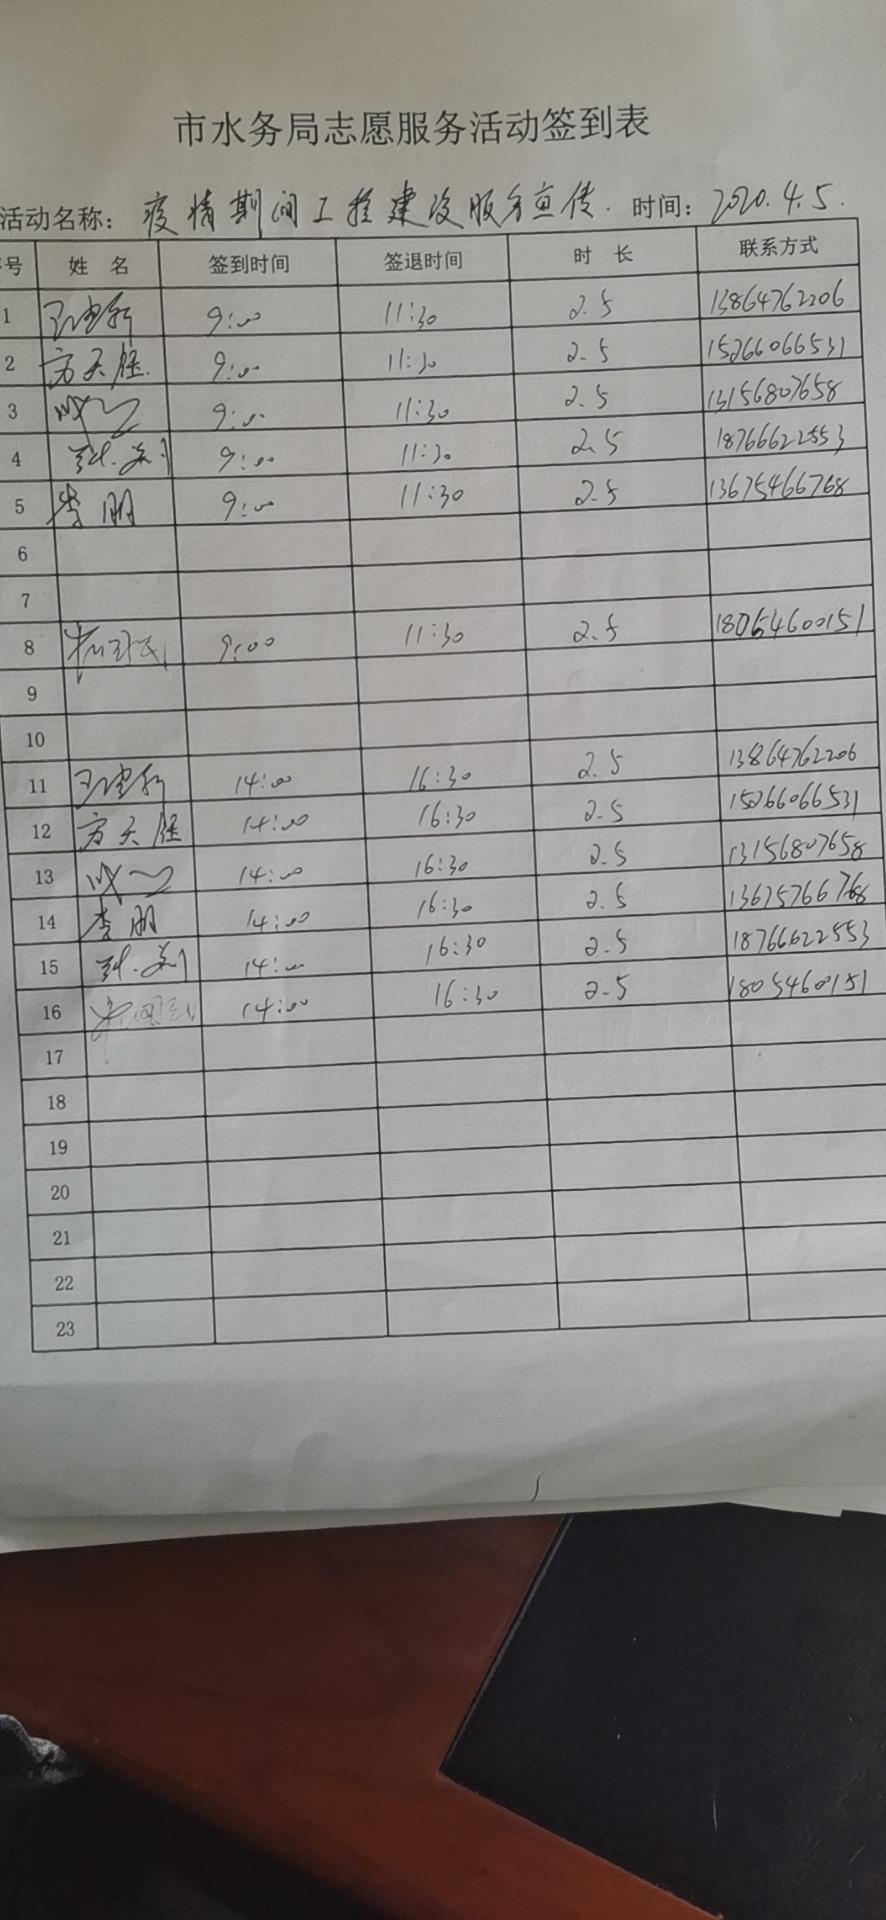 市水务局志愿服务活动签到表
活动名称: 疫情期间工程建设服务宣传. 时间: 2020.4.5.
序号 姓 名 签到时间 签退时间 时 长 联系方式
1 9:00 11:30 2.5 13864762206
2 方天健 9:00 11:30 2.5 15266066531
3 9:00 11:30 2.5 13156807658
4 9:00 11:30 2.5 18766622553
5 李明 9:00 11:30 2.5 13675466768
6
7
8 9:00 11:30 2.5 18054600151
9
10
11 14:00 16:30 2.5 13864762206
12 方天健 14:00 16:30 2.5 15266066531
13 14:00 16:30 2.5 13156807658
14 李明 14:00 16:30 2.5 13675766768
15 14:00 16:30 2.5 18766622553
16 14:00 16:30 2.5 1805460151
17
18
19
20
21
22
23